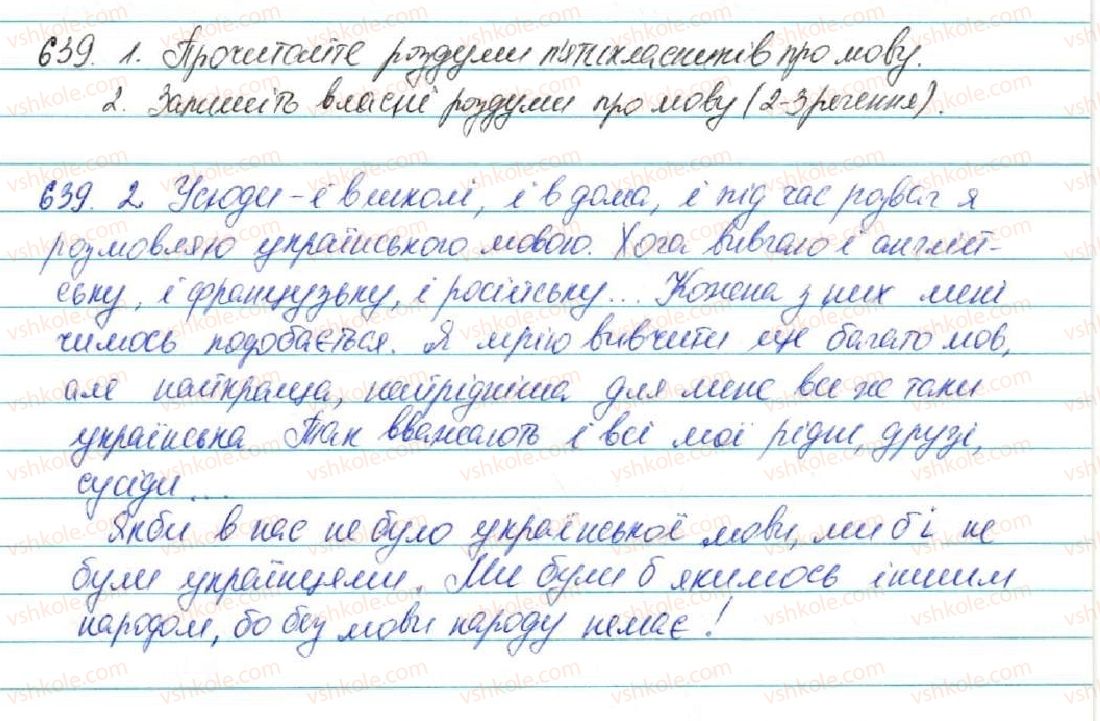 639. 1. Прочитайте роздуми п'ятикласників про мову.
2. Запишіть власні роздуми про мову (2-3 речення).
639. 2. Усюди - і в школі, і вдома, і під час розваг я
розмовляю українською мовою. Хоча вивчаю і англій-
ську, і французьку, і російську... Кожена з них мені
чимось подобається. Я мрію вивчити ще багато мов,
але найкраща, найрідніша для мене все ж таки
українська. Так вважають і всі мої рідні, друзі,
сусіди...
Якби в нас не було української мови, ми б і не
були українцями. Ми були б якимось іншим
народом, бо без мови народу немає!
vshkole.com